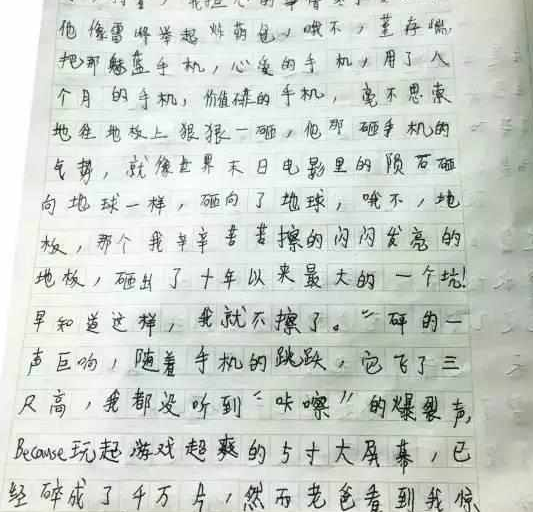 他像雷峰举起炸药包，哦不，董存瑞，
把那魅蓝手机，心爱的手机，用了八
个月的手机，价值不菲的手机，毫不思索
地在地板上狠狠一砸，他那砸手机的
气势，就像世界末日电影里的陨石砸
向地球一样，砸向了地球，哦不，地
板，那个我辛辛苦苦擦的闪闪发亮的
地板，砸出了十年以来最大的一个坑！
早知道这样，我就不擦了。“砰的一
声巨响，随着手机的跳跃，它飞了三
尺高，我都没听到“咔嚓”的爆裂声，
Because玩起游戏超爽的5寸大屏幕，已
经碎成了千万片，然而老爸看到我惊